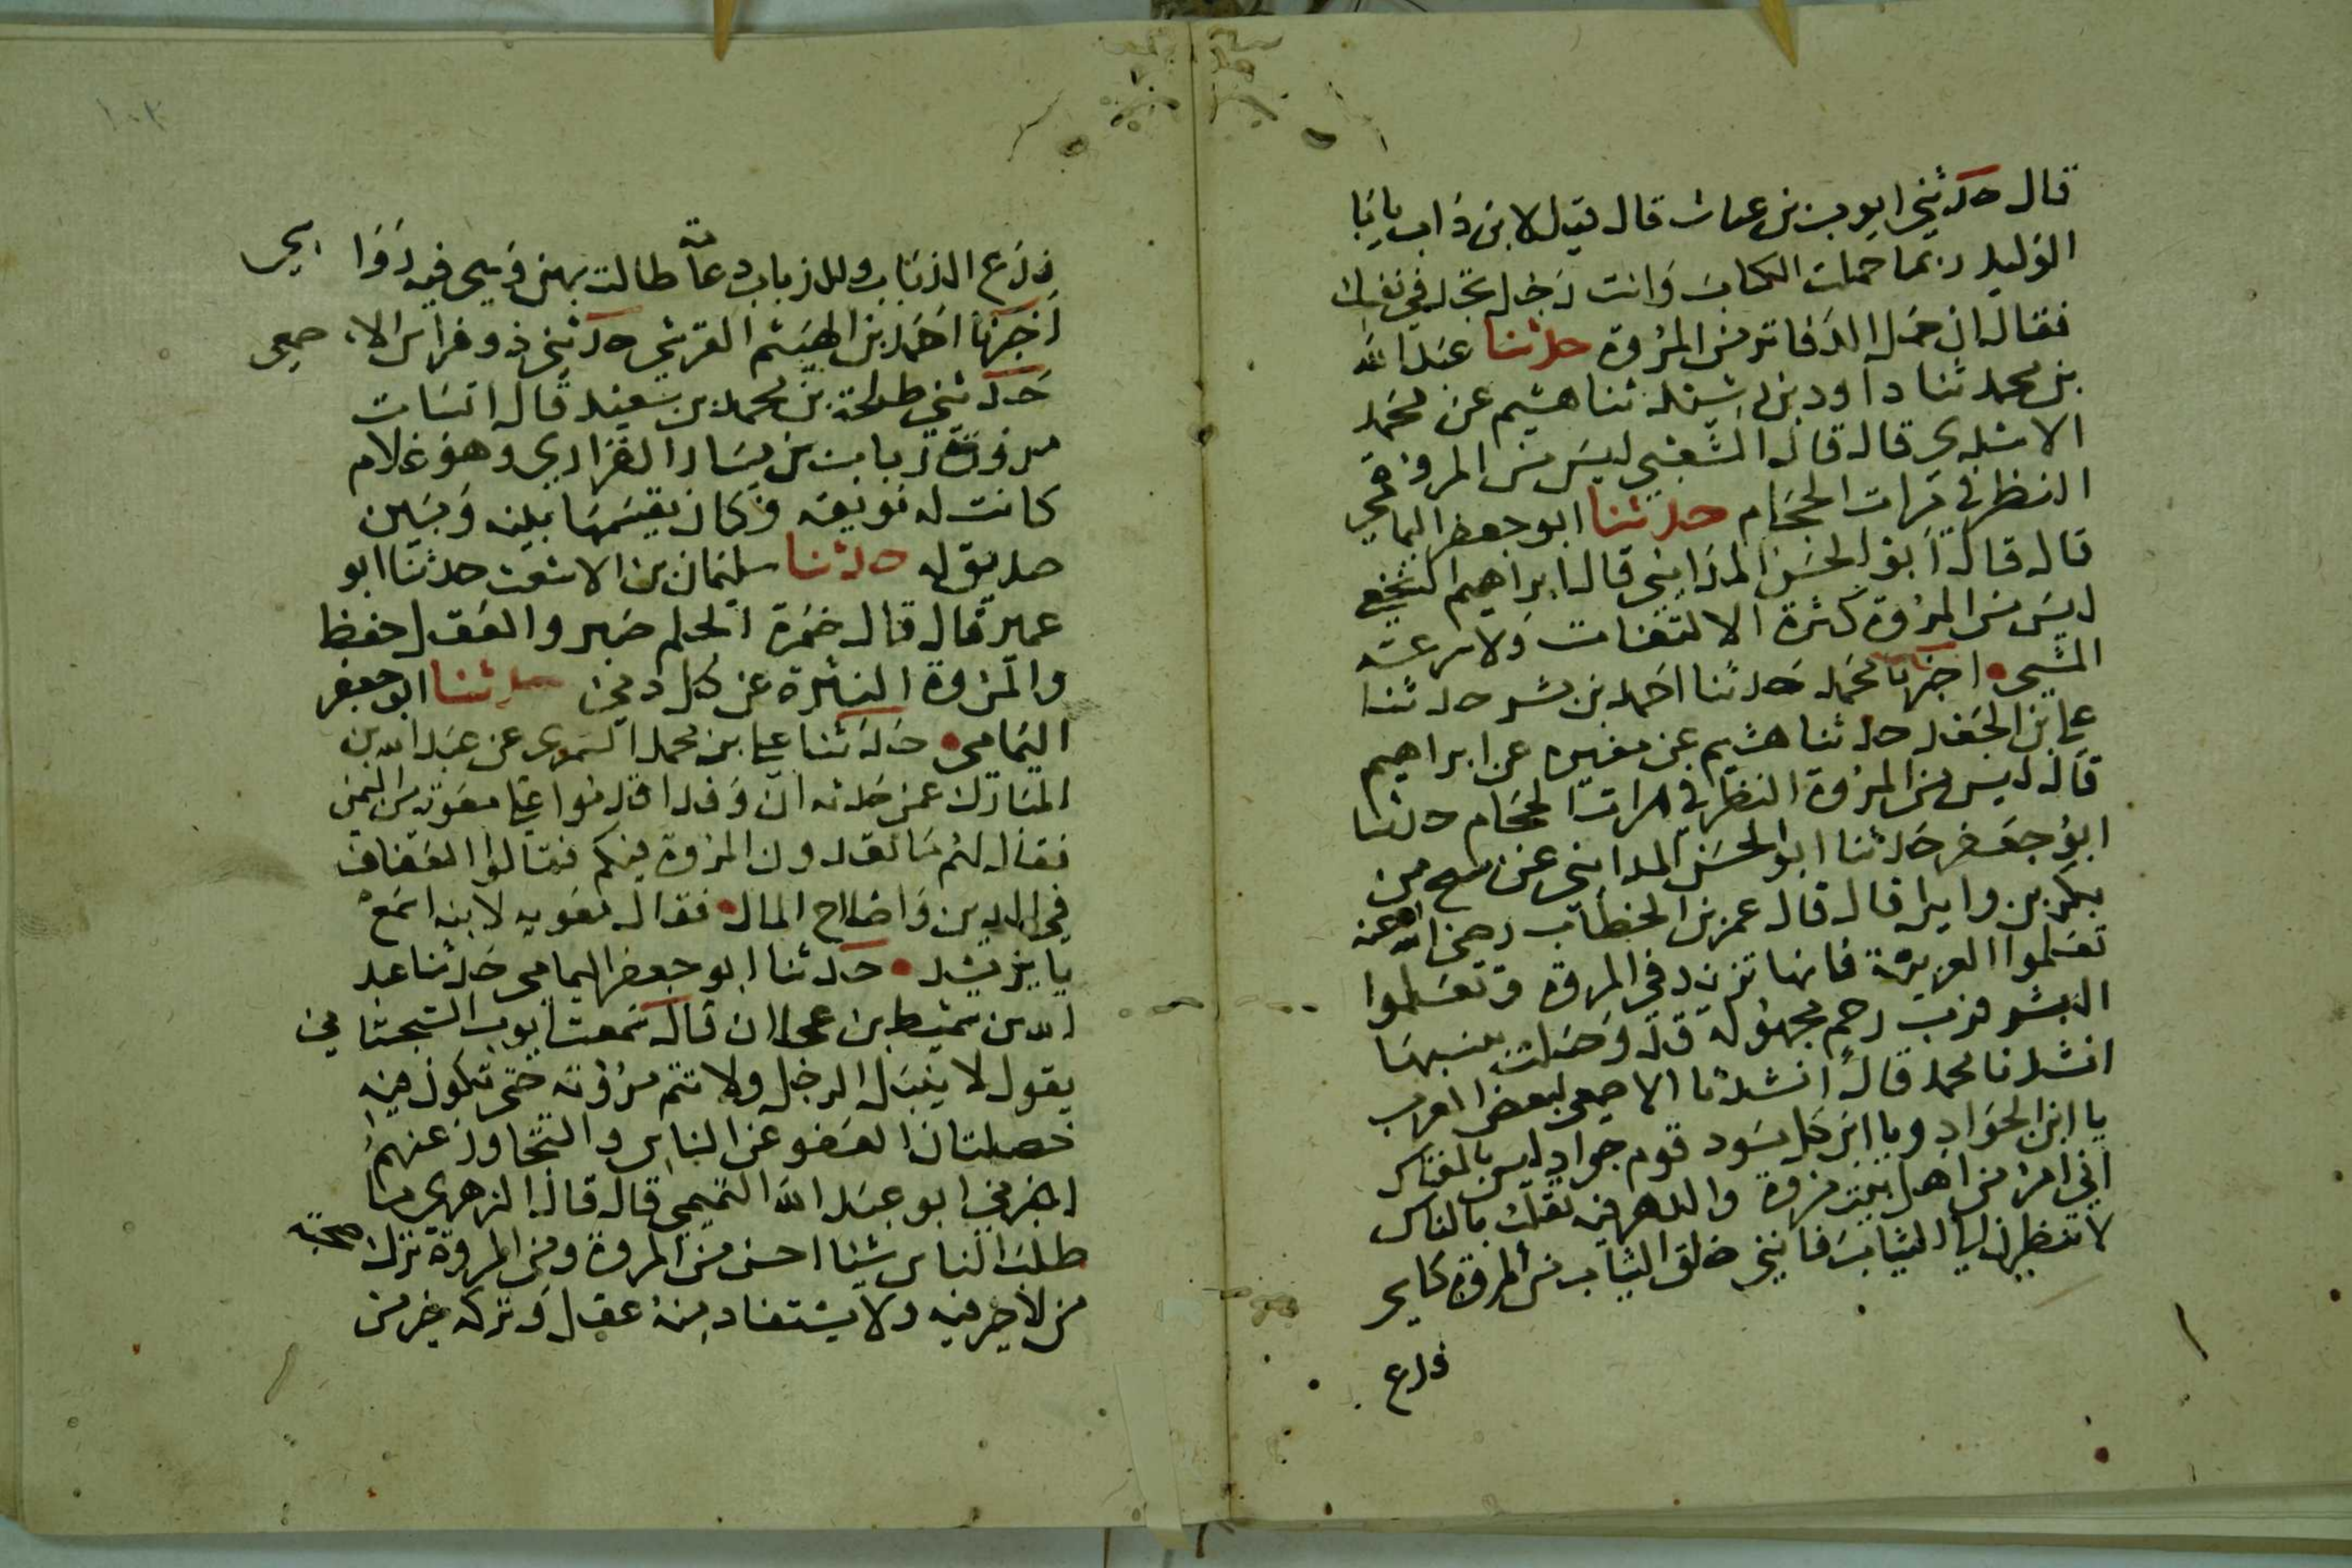 قال حدثني ايوب بن عباث قال قيل لابن داب يا با
الوليد ربما حملت الكتاب وانت رجل تجد في نفسك
فقال ان حمل الدفاتر من المروة حدثنا عبد الله
بن محمد ثنا داود بن رشيد ثنا هشيم عن محمد
الاسدي قال قال الشعبي ليس من المروة
النظر في مرات الحجام حدثنا ابو جعفر اليمامي
قال قال ابو الحسن المدايني قال ابراهيم النخعي
ليس من المروة كثرة الالتفات ولا سرعة
المشي اخبرنا محمد حدثنا احمد بن بشر حدثنا
علي بن الجعد حدثنا هشيم عن مغيره عن ابراهيم
قال ليس من المروة النظر في مرات الحجام حدثنا
ابو جعفر حدثنا ابو الحسن المدايني عن من
بكر بن وايل قال قال عمر بن الخطاب رضي الله عنه
تعلموا العربية فانها تزيد في المروة وتعلموا
النسب فرب رحم مجهولة قد وصلت بنسبها
انشدنا محمد قال انشدنا الاصمعي لبعض العرب
يا ابن الجواد ويا ابن كل مسود قوم جواد ليس بالمفتاك
اني امرؤ من اهل بيت مروة والدهر فيه تقلب بالناس
لا تنظرن لي الثياب فانني خلق الثياب من المروة كاسي
فزع
فزع الذباب وللذباب دعا طالت بهن وسمى فيه ذوا
اخبرنا احمد بن الهيثم القرشي حدثني ذو فراس الا صمعي
حدثني طلحة بن محمد بن سعيد قال انسات
مروة زبان بن يسار الفزاري وهو غلام
كانت له نويقه وكان يقسمها بينه وبين
صديق له حدثنا سليمان بن الاشعث حدثنا ابو
عمير قال قال ضمرة الحلم صبر والعقل حفظ
والمروة النزة عن كل دني حدثنا ابو جعفر
اليمامي حدثنا علي بن محمد السمري عن عبد الله بن
المبارك عمن حدثه ان وفدا قدموا علي معوية من اليمن
فقال لهم ما تعدون المروة فيكم فقالوا العفاف
في الدين واصلاح المال فقال معويه لابنه اسمع
يا يزيد حدثنا ابو جعفر اليمامي حدثنا عبد
الله بن شميط بن عجلان قال سمعت ايوب السجستاني
يقول لا ينبل الرجل ولا تتم مروته حتى تكون فيه
خصلتان العفو عن الناس والتجاوز عنهم
اخبرني ابو عبد الله التميمي قال قال الزهري ما
طلب الناس شيا احسن من المروة ومن المروة ترك صحبة
من لا خير فيه ولا يستفاد منه عقل وتركه خير من